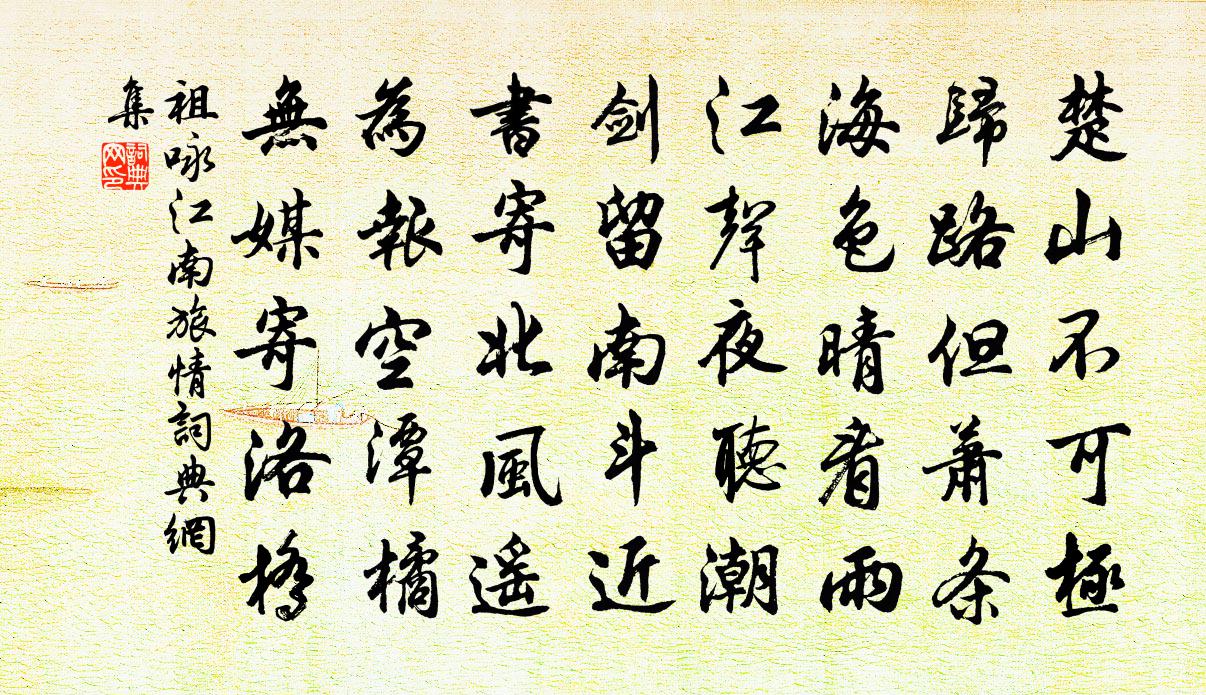 楚山不可極
歸路但蕭条
海色晴看雨
江聲夜聽潮
劍留南斗近
書寄北風遥
為報空潭橘
無媒寄洛橋
祖咏江南旅情詞典網
集
詞典
网印